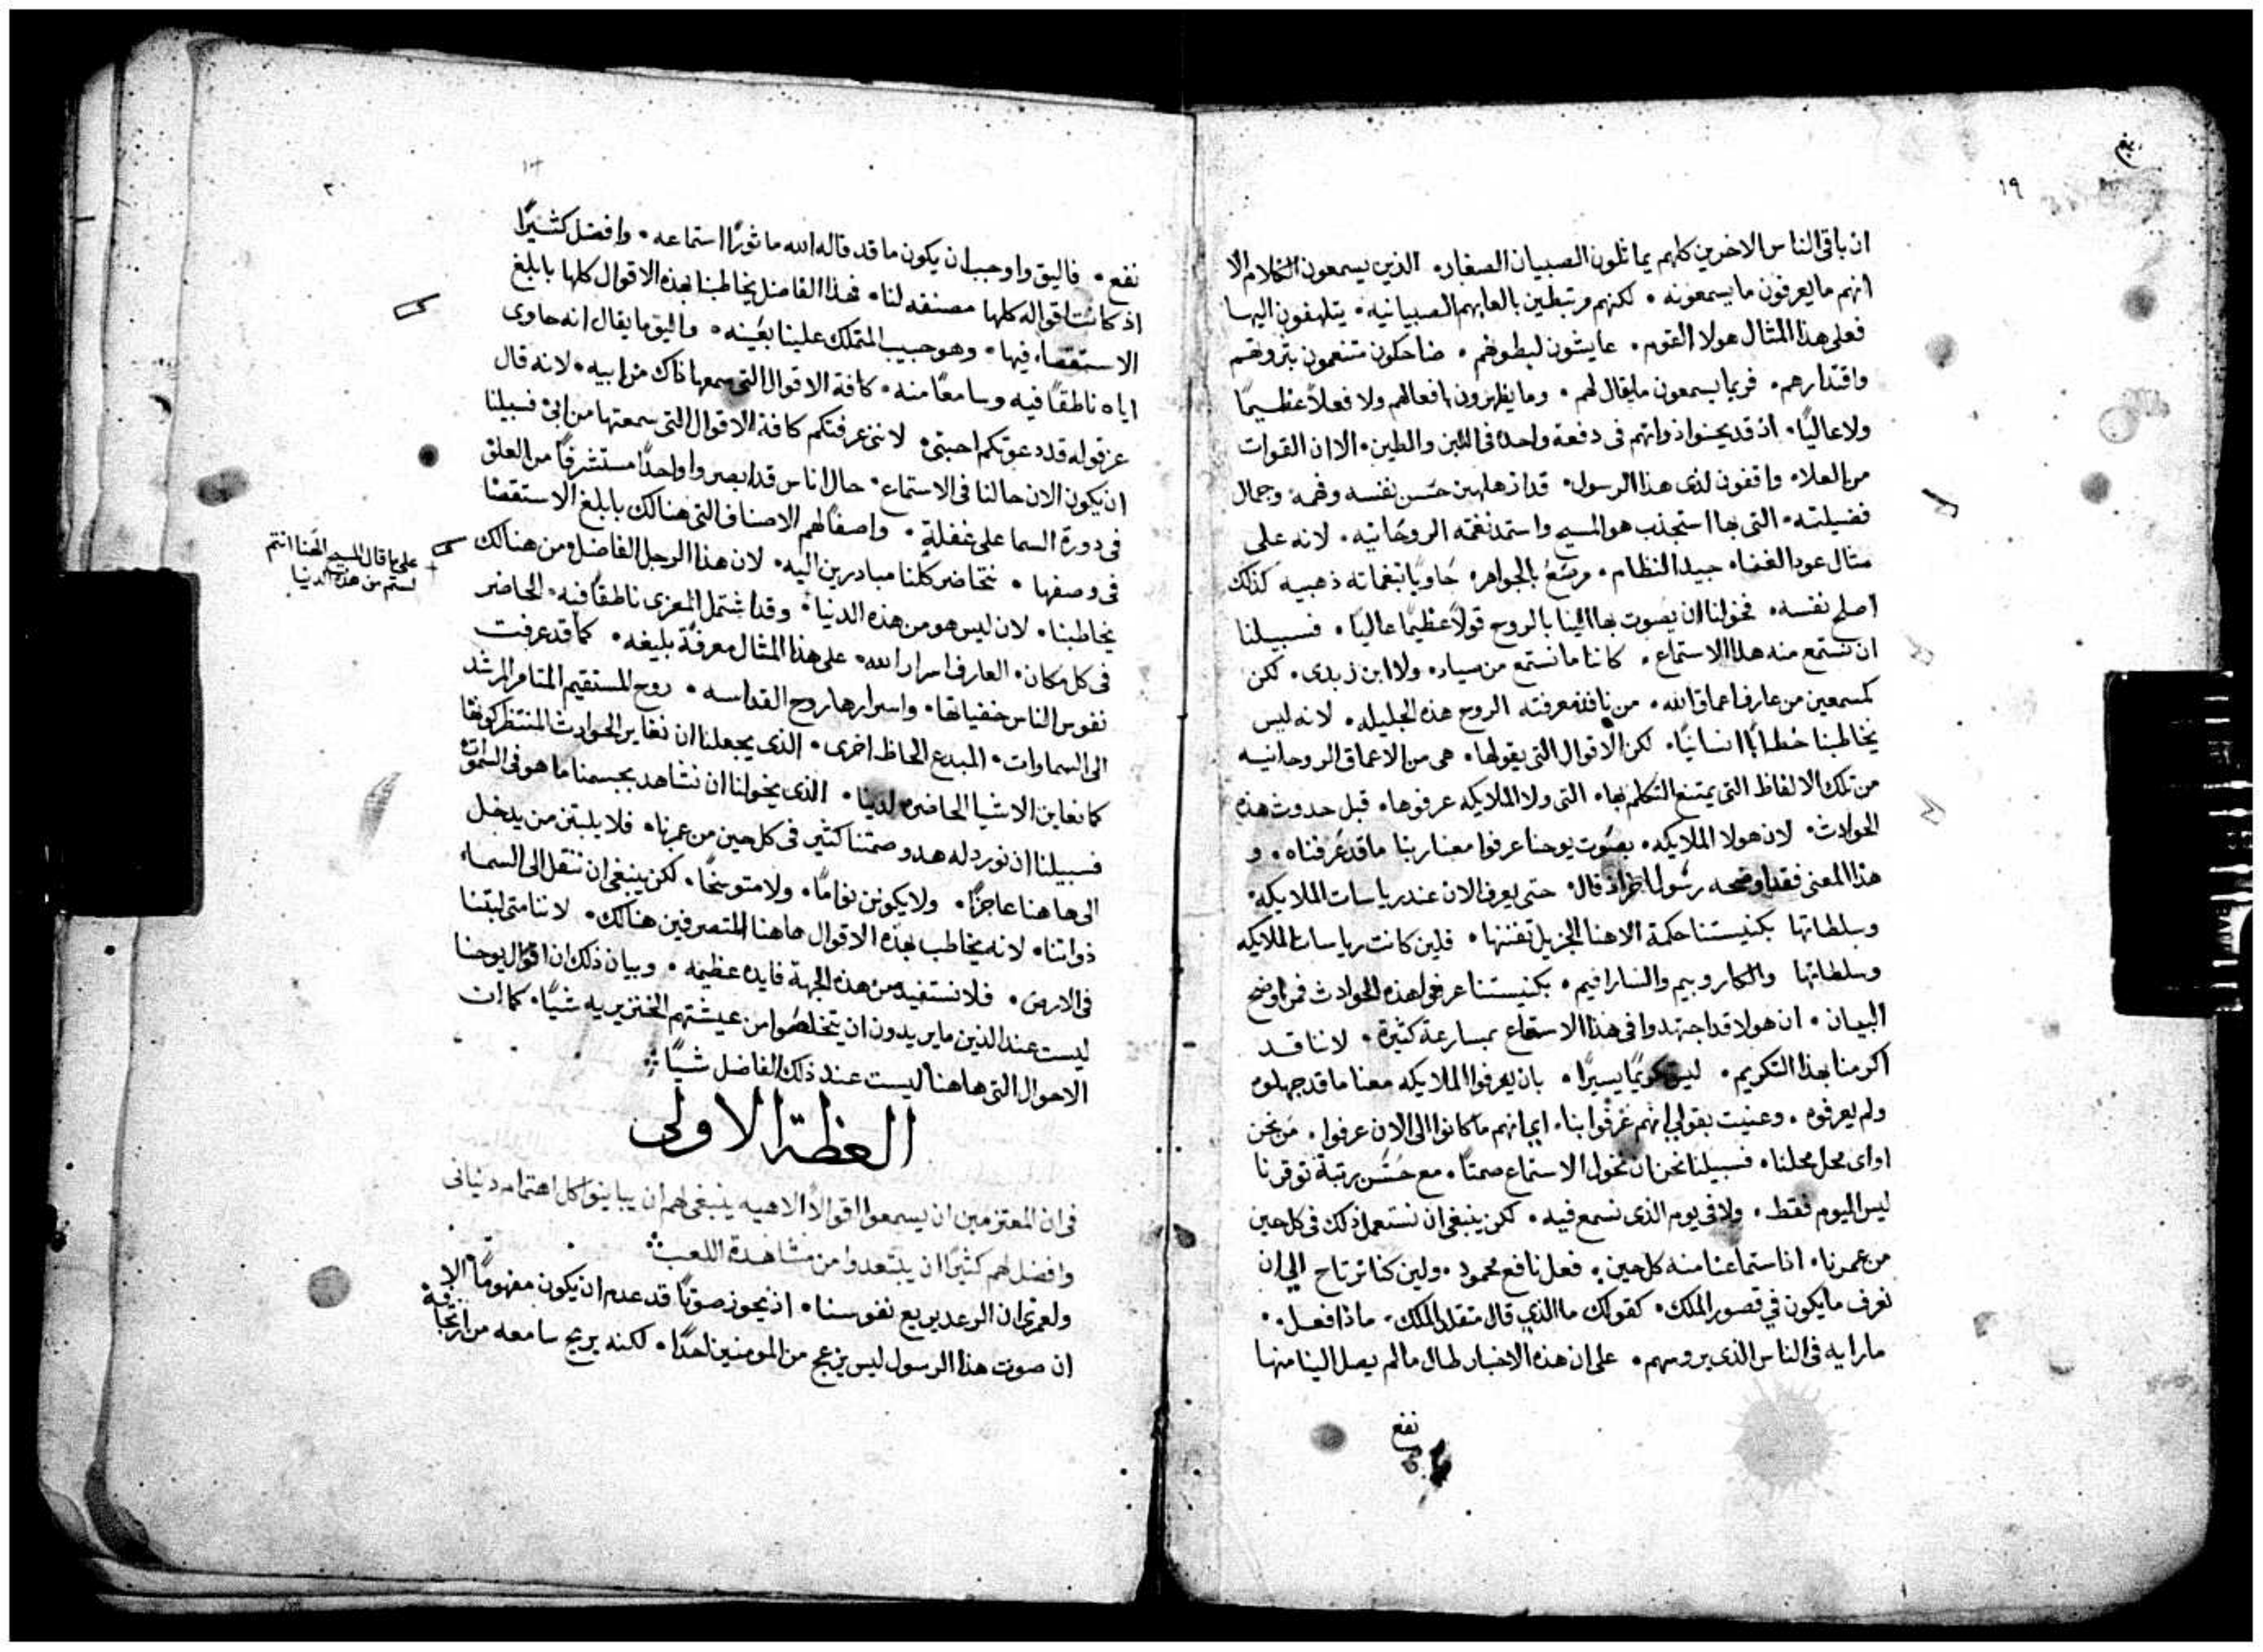 ١٩
ان باقي الناس الاخرين كلهم يماثلون الصبيان الصغار. الذين يسمعون الكلام الا
انهم ما يعرفون ما يسمعونه. لكنهم مرتبطين بالعابهم الصبيانيه. يتلهفون اليها
فعلى هذا المثال هولا القوم. عايشون لبطونهم. ضاحكون متنعمون بثروتهم
واقتدارهم. فربما يسمعون ما يقال لهم. وما يظهرون بافعالهم ولا فعلاً عظيماً
ولا عالياً. اذ قد يحنوا ذواتهم في دفعة واحده في اللبن والطين. الا ان القوات
من العلاء واقفون لدى هذا الرسول. قد اذهلهم حسن نفسه وفهمه وجمال
فضيلته. التي بها استجذب هو المسيح واستمد نغمته الروحانيه. لانه على
مثال عود الغناء جيد النظام. مرصع بالجواهر حاوياً نغماته ذهبيه كذلك
اصلح نفسه. فخولنا ان يصوت بها الينا بالروح قولاً عظيماً عالياً. فسبيلنا
ان نستمع منه هذا الاستماع. كاننا ما نستمع من صياد. ولا ابن زبدى. لكن
كمسمعين من عارف اعماق الله. من نافذ معرفته الروح هذه الجليله. لانه ليس
يخاطبنا خطاباً انسانياً. لكن الاقوال التي يقولها. هي من الاعماق الروحانيه
من تلك الالفاظ التي يمتنع التكلم بها. التي ولا الملايكه عرفوها. قبل حدوث هذه
الحوادث. لان هولا الملايكه. بصوت يوحنا عرفوا معنا ربنا ما قد عرفناه. و
هذا المعنى فقد اوضحه رسول اخر اذ قال. حتى يعرف الان عند رياسات الملايكه.
وسلطاتها بكنيستنا حكمة الاهنا الجزيل تفننها. فلين كانت رياسات الملايكه
وسلطاتها والكاروبيم والسارافيم. بكنيستنا عرفوا هذه الحوادث فمن اوضح
البيان. ان هولا قد اجتهدوا في هذا الاستماع بمسارعة كثيرة. لاننا قد
اكرمنا بهذا التكريم. ليس تكريماً يسيراً. بان يعرفوا الملايكه معنا ما قد جهلوه
ولم يعرفوه. وعنيت بقولي انهم عرفوا بنا. اي انهم ما كانوا الى الان عرفوا. من نحن
او اي محل محلنا. فسبيلنا نحن ان نخول الاستماع صمتاً. مع حسن رتبة توقرنا
ليس اليوم فقط. ولا في يوم الذي نسمع فيه. لكن ينبغي ان نستعمل ذلك في كل حين
من عمرنا. اذ استماعنا منه كل حين. فعل نافع محمود. ولين كنا نرتاح الى ان
نعرف ما يكون في قصور الملك. كقولك ما الذي قال متقلد الملك. ماذا فعل.
ما رايه في الناس الذي يروسهم. على ان هذه الاخبار طال ما لم يصل الينا منها
نفع
٢٠
نفع. فاليق واوجب ان يكون ما قد قاله الله ماثوراً استماعه. وافضل كثيراً
اذ كانت اقواله كلها مصنفه لنا. فهذا الفاضل يخاطبنا بهذه الاقوال كلها بابلغ
الاستقصاء فيها. وهو حبيب المتملك علينا بعينه. واليق ما يقال انه حاوى
اياه ناطقاً فيه وسامعاً منه. كافة الاقوال التي سمعها ذاك من ابيه. لانه قال
عز قوله قد دعوتكم احبتي. لانني عرفتكم كافة الاقوال التي سمعتها من ابي. فسبيلنا
ان يكون الان حالنا في الاستماع. حال اناس قد ابصروا واحداً مستشرفاً من العلو
في دورة السما على غفلة. واصفاً لهم الاصناف التي هنالك بابلغ الاستقصا
في وصفها. نتحاضر كلنا مبادرين اليه. لان هذا الرجل الفاضل من هنالك
يخاطبنا. لان ليس هو من هذه الدنيا. وقد اشتمل المعزى ناطقاً فيه. الحاضر
في كل مكان. العارف اسرار الله. على هذا المثال معرفة بليغه. كما قد عرفت
نفوس الناس خفياتها. واسرارها روح القداسه. روح المستقيم المتامر المرشد
الى السماوات. المبدع الحاظ اخرى. الذي يجعلنا ان نعاين الحوادث المنتظر كونها
كما نعاين الاشيا الحاضره لدينا. الذي يخولنا ان نشاهد بجسمنا ما هو في السموات
فسبيلنا ان نورد له هدو صمتنا كثير في كل حين من عمرنا. فلا يلبثن من يدخل
الى هاهنا عاجزاً. ولا يكونن نواماً. ولا متوسخاً. لكن ينبغي ان ننقل الى السماء
ذواتنا. لانه يخاطب بهذه الاقوال هاهنا المتصرفين هنالك. لاننا متى لبثنا
في الارض. فلا نستفيد من هذه الجهة فايده عظيمه. وبيان ذلك ان اقوال يوحنا
ليست عند الذين ما يريدون ان يتخلصوا من عيشتهم الخنزيريه شياً. كما ان
الاحوال التي هاهنا ليست عند ذلك الفاضل شياً
على ما قال المسيح الهنا انتم
لستم من هذه الدنيا
العظة الاولى
في ان المعتزمين ان يسمعوا اقوالاً الاهيه ينبغي لهم ان يباينوا كل اهتمام دنياني
وافضل لهم كثيراً ان يبتعدوا من مشاهدة اللعب
ولعمري ان الرعد يريع نفوسنا. اذ يحوز صوتاً قد عدم ان يكون مفهوماً الا
ان صوت هذا الرسول ليس يزعج من المومنين احداً. لكنه يريح سامعه من ارتجافه